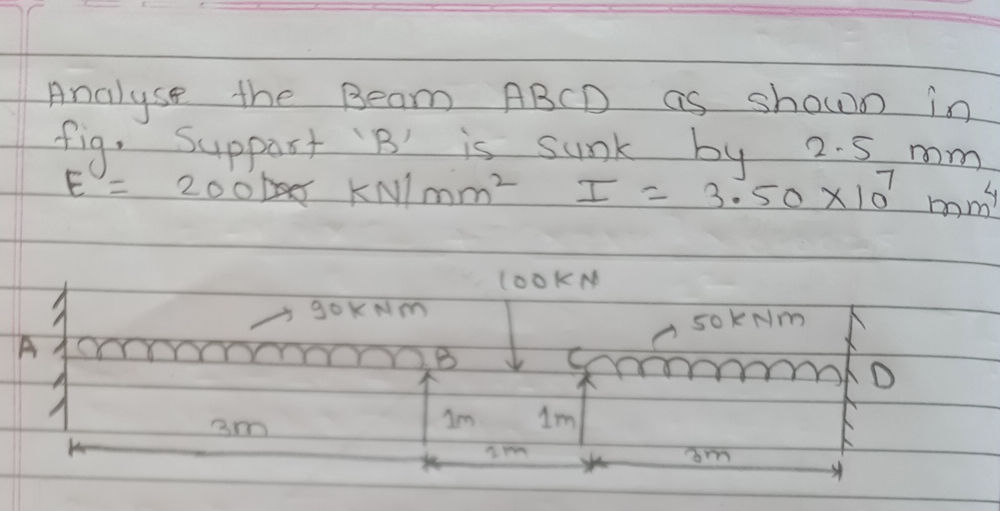 Analyse the Beam ABCD as shown in
fig. Support 'B' is sunk by 2.5 mm
E = 200 KN/mm² I = 3.50 × 10⁷ mm⁴
100KN
90KNm
50KNm
A
B
C
D
1m
1m
3m
2m
3m